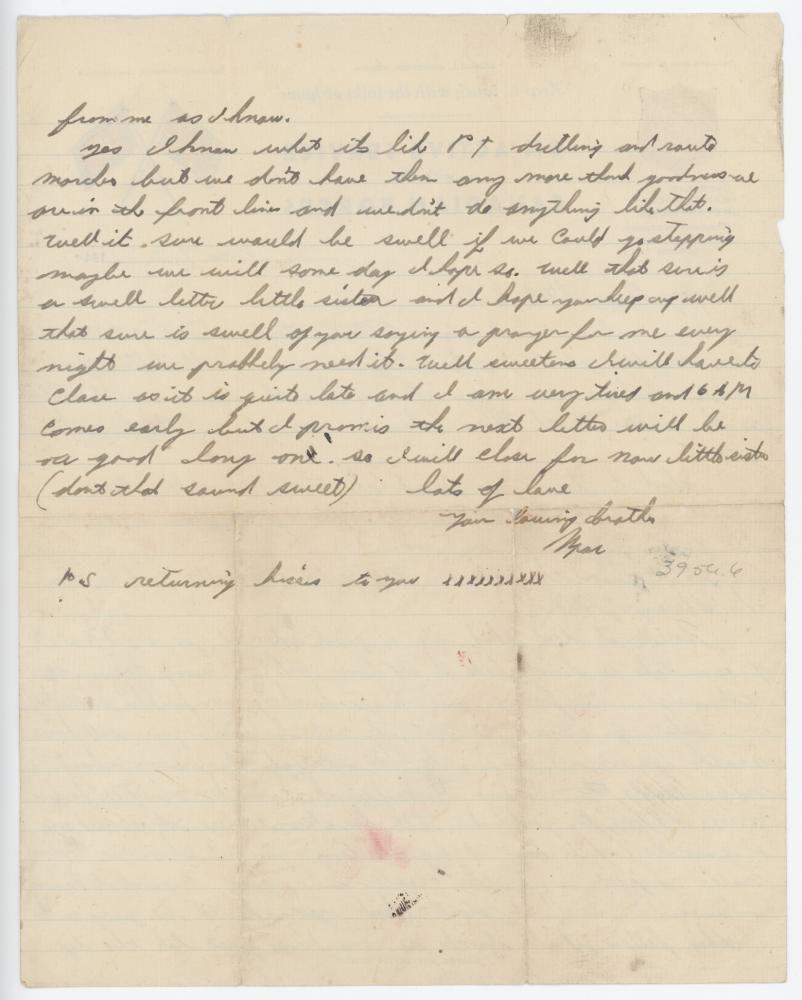 from me as I know.
yes I know what its like P T drilling and route
marches but we don't have them any more thank goodness we
are in the front lines and we don't do anything like that.
Well it sure would be swell if we could go stepping
maybe we will some day I hope so. Well that sure is
a swell letter little sister and I hope you keep up well
that sure is swell of you saying a prayer for me every
night we probbely need it. Well sweetens I will have to
close as it is quite late and I am very tired and 6 AM
comes early but I promis the next letter will be
a good long one. so I will close for now little sister
(dont that sound sweet) lots of love
Your loving brother
PS returning kisses to you xxxxxxxxxx